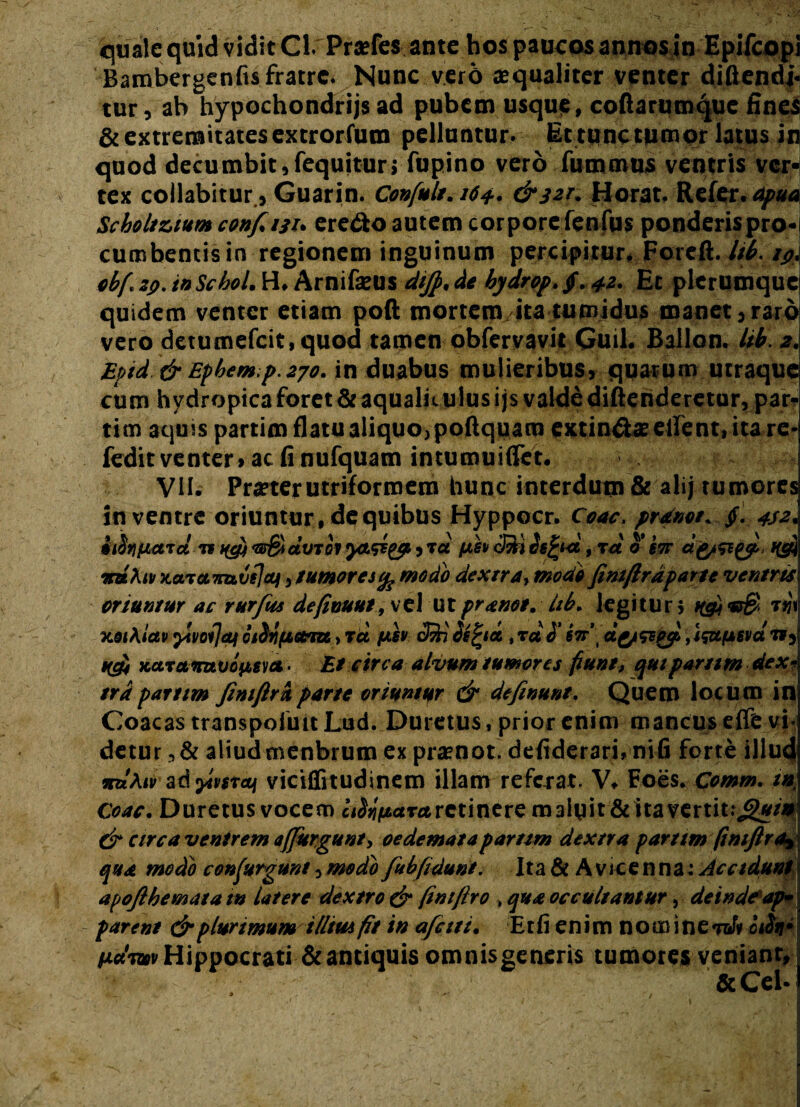 quale quid vidit Cl. Præses ante hos paucos annos in Episcopi
Bambergensis fratre. Nunc verò æqualiter venter distendi-
tur, ab hypochondrijs ad pubem usque, costarumque fines
& extremitates extrorsum pelluntur. Et tunc tumor latus in
quod decumbit, sequitur; supino verò summus ventris ver-
tex collabitur, Guarin. Consult. 164. & 321. Horat. Refer. apud
Scholtzium conf. 131. erecto autem corpore sensus ponderis pro-
cumbentis in regionem inguinum percipitur. Forest. lib. 19.
obs. 29. in Schol. H. Arnisæus disp. de hydrop. §. 42. Et plerumque
quidem venter etiam post mortem ita tumidus manet, rarò
vero detumescit, quod tamen observavit Guil. Ballon. lib. 2.
Epid. & Ephem. p. 270. in duabus mulieribus, quarum utraque
cum hydropica foret & aqualiculus ijs valdè distenderetur, par-
tim aquis partim flatu aliquo, postquam extinctæ essent, ita re-
sedit venter, ac si nusquam intumuisset.
VII. Præter utriformem hunc interdum & alij tumores
in ventre oriuntur, de quibus Hyppocr. Coac. prænot. §. 452.
οἰδήματά τε καὶ περὶ ἀυτὸν γαςέρα, τὰ μὲν ἐπὶ δεξιὰ, τὰ δ' ἐπ' ἀριςερὰ, καὶ
πάλιν καταπαύεται, tumoresq; modò dextra, modò sinistrâ parte ventris
oriuntur ac rursus desinunt, vel ut prænot. lib. legitur; καὶ περὶ τὴν
κοιλίαν γίνονται οἰδήματα, τὰ μὲν ἐπὶ δεξιὰ, τὰ δ' ἐπ' ἀριςερὰ, ἱςάμενά τε,
καὶ καταπαυόμενα. Et circa alvum tumores fiunt, qui partim dex-
trâ partim sinistrâ parte oriuntur & desinunt. Quem locum in
Coacas transposuit Lud. Duretus, prior enim mancus esse vi-
detur, & aliud menbrum ex prænot. desiderari, nisi fortè illud
πάλιν ad γίνεται vicissitudinem illam referat. V. Foës. Comm. in
Coac. Duretus vocem οἰδήματα retinere maluit & ita vertit: Quin
& circa ventrem assurgunt, oedemata partim dextra partim sinistra,
quæ modò consurgunt, modò subsidunt. Ita & Avicenna: Accidunt
apostemata in latere dextro & sinistro, quæ occultantur, deinde ap-
parent & plurimum illius fit in asciti. Etsi enim nomine τῶν οἰδη-
μάτων Hippocrati & antiquis omnis generis tumores veniant,
& Cel-